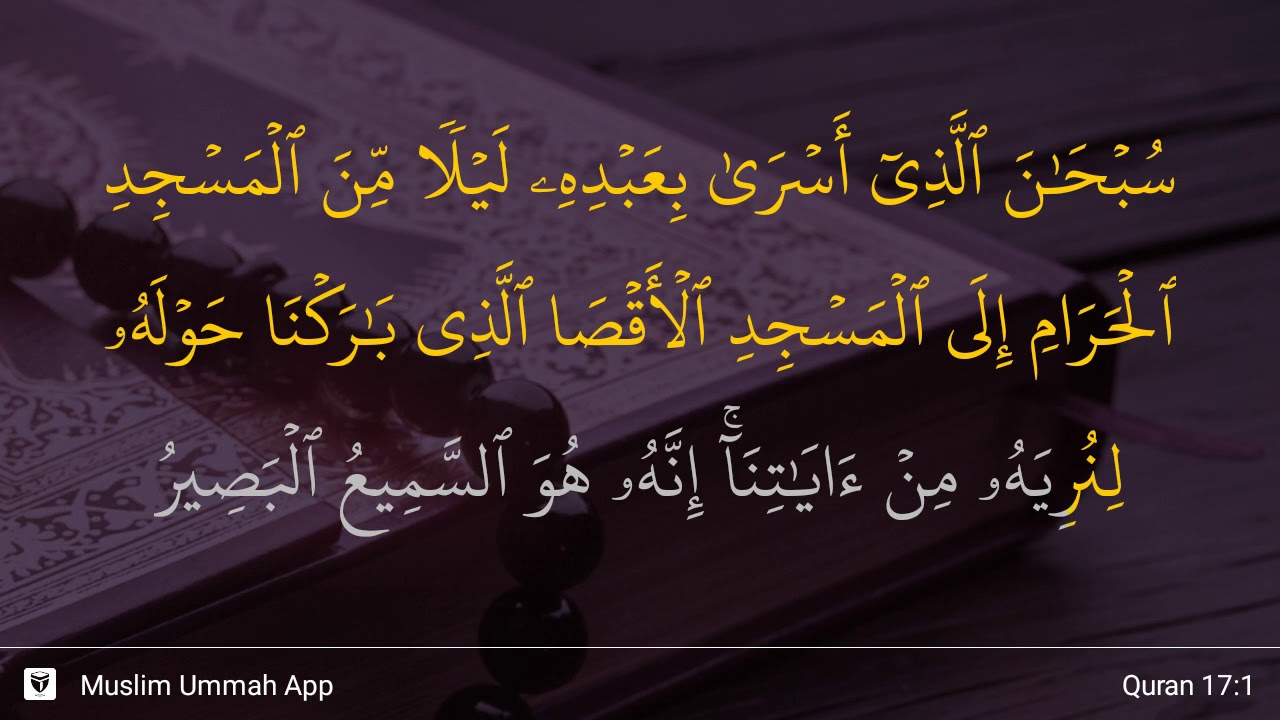 سُبْحَـٰنَ ٱلَّذِىٓ أَسْرَىٰ بِعَبْدِهِۦ لَيْلًا مِّنَ ٱلْمَسْجِدِ
ٱلْحَرَامِ إِلَى ٱلْمَسْجِدِ ٱلْأَقْصَا ٱلَّذِى بَـٰرَكْنَا حَوْلَهُۥ
لِنُرِيَهُۥ مِنْ ءَايَـٰتِنَآ ۚ إِنَّهُۥ هُوَ ٱلسَّمِيعُ ٱلْبَصِيرُ
Muslim Ummah App
Quran 17:1